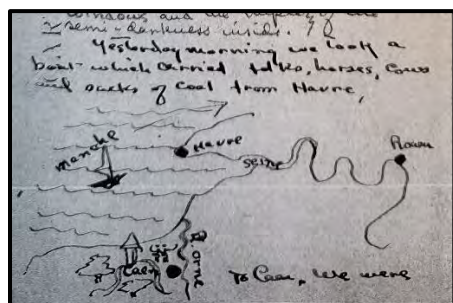 semi-darkness inside.
Yesterday morning we took a
boat which carried folks, horses, cows
and sacks of coal from Havre,
Manche
Havre
Seine
Rouen
Orne
Caen
To Caen, We were